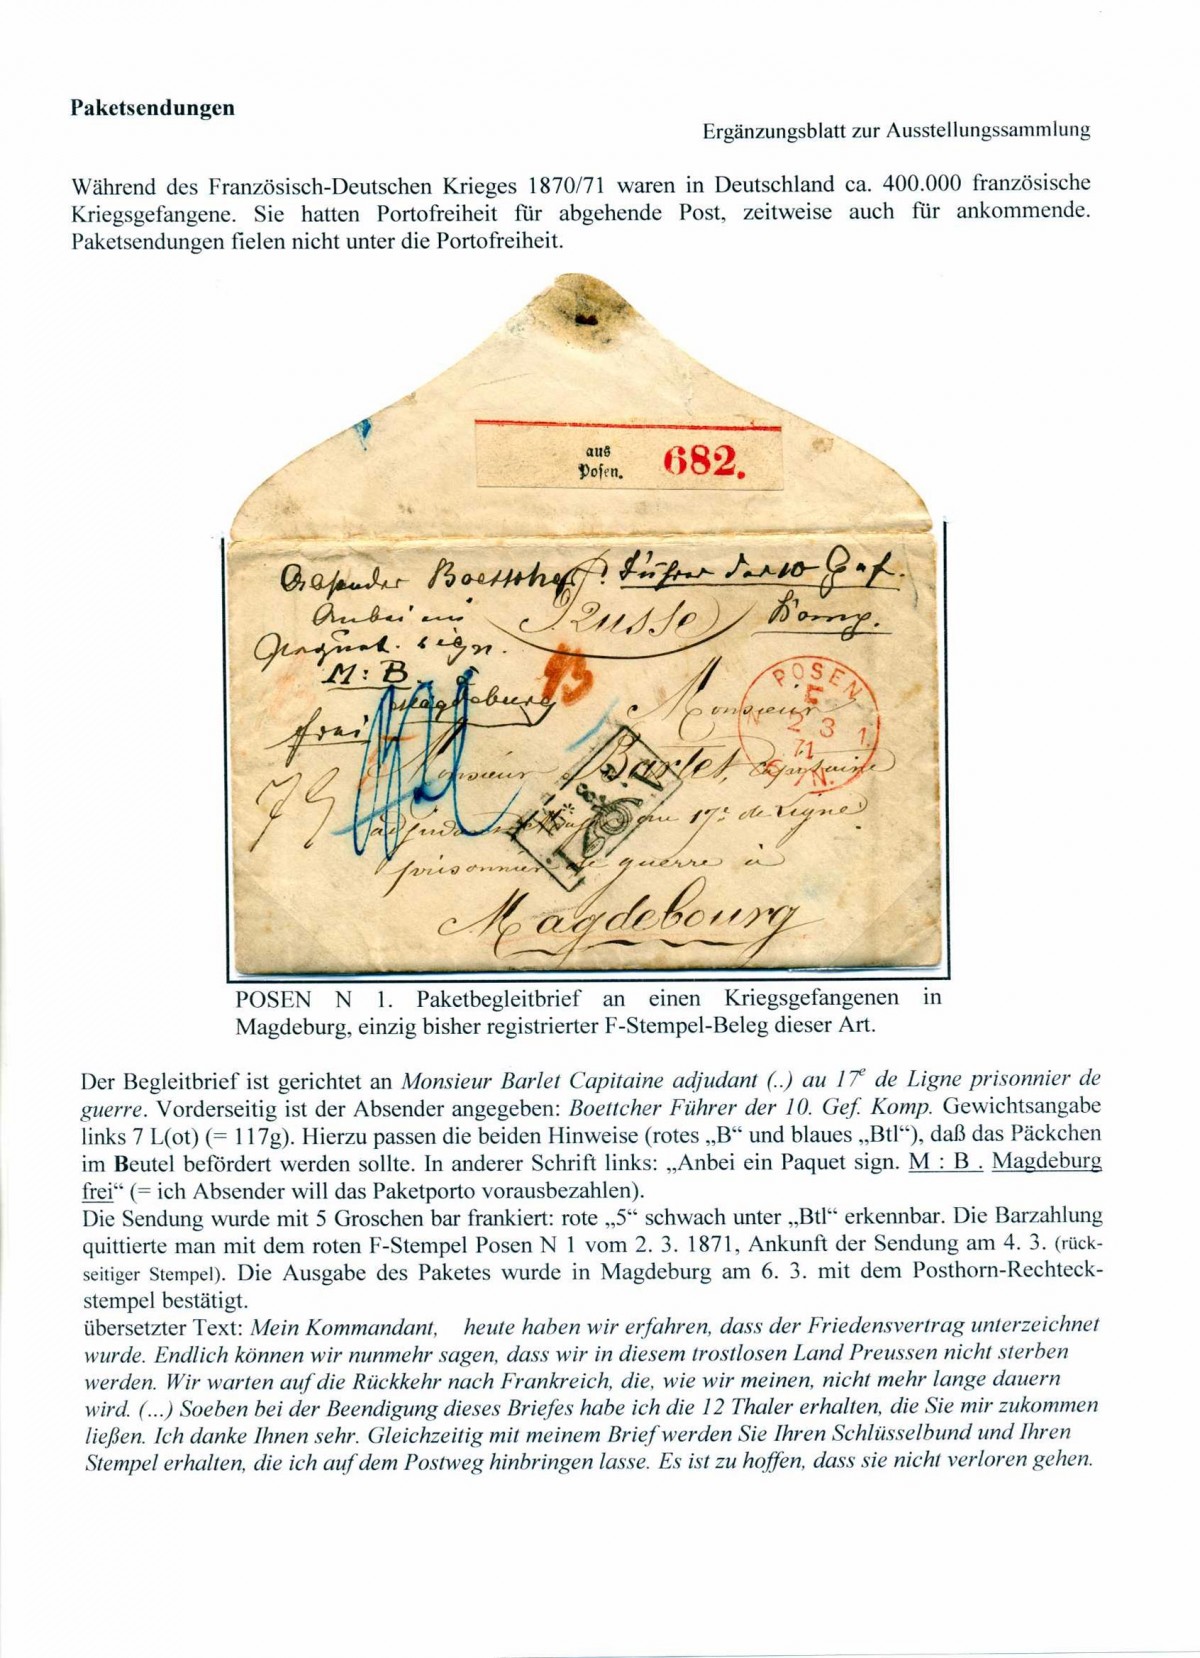 Paketsendungen
Ergänzungsblatt zur Ausstellungssammlung
Während des Französisch-Deutschen Krieges 1870/71 waren in Deutschland ca. 400.000 französische
Kriegsgefangene. Sie hatten Portofreiheit für abgehende Post, zeitweise auch für ankommende.
Paketsendungen fielen nicht unter die Portofreiheit.
aus
Posen.
682.
Absender Boettcher Führer der 10 Gef.
Komp.
Anbei ein
Paquet. sign.
M : B.
Magdeburg
frei
Russe
Monsieur
POSEN
F
2 3
71
N 1.
Monsieur Barlet, Capitaine
au 17e de Ligne
prisonnier de guerre à
Magdebourg
POSEN N 1. Paketbegleitbrief an einen Kriegsgefangenen in
Magdeburg, einzig bisher registrierter F-Stempel-Beleg dieser Art.
Der Begleitbrief ist gerichtet an Monsieur Barlet Capitaine adjudant (..) au 17e de Ligne prisonnier de
guerre. Vorderseitig ist der Absender angegeben: Boettcher Führer der 10. Gef. Komp. Gewichtsangabe
links 7 L(ot) (= 117g). Hierzu passen die beiden Hinweise (rotes „B“ und blaues „Btl“), daß das Päckchen
im Beutel befördert werden sollte. In anderer Schrift links: „Anbei ein Paquet sign. M : B . Magdeburg
frei“ (= ich Absender will das Paketporto vorausbezahlen).
Die Sendung wurde mit 5 Groschen bar frankiert: rote „5“ schwach unter „Btl“ erkennbar. Die Barzahlung
quittierte man mit dem roten F-Stempel Posen N 1 vom 2. 3. 1871, Ankunft der Sendung am 4. 3. (rück-
seitiger Stempel). Die Ausgabe des Paketes wurde in Magdeburg am 6. 3. mit dem Posthorn-Rechteck-
stempel bestätigt.
übersetzter Text: Mein Kommandant, heute haben wir erfahren, dass der Friedensvertrag unterzeichnet
wurde. Endlich können wir nunmehr sagen, dass wir in diesem trostlosen Land Preussen nicht sterben
werden. Wir warten auf die Rückkehr nach Frankreich, die, wie wir meinen, nicht mehr lange dauern
wird. (...) Soeben bei der Beendigung dieses Briefes habe ich die 12 Thaler erhalten, die Sie mir zukommen
ließen. Ich danke Ihnen sehr. Gleichzeitig mit meinem Brief werden Sie Ihren Schlüsselbund und Ihren
Stempel erhalten, die ich auf dem Postweg hinbringen lasse. Es ist zu hoffen, dass sie nicht verloren gehen.